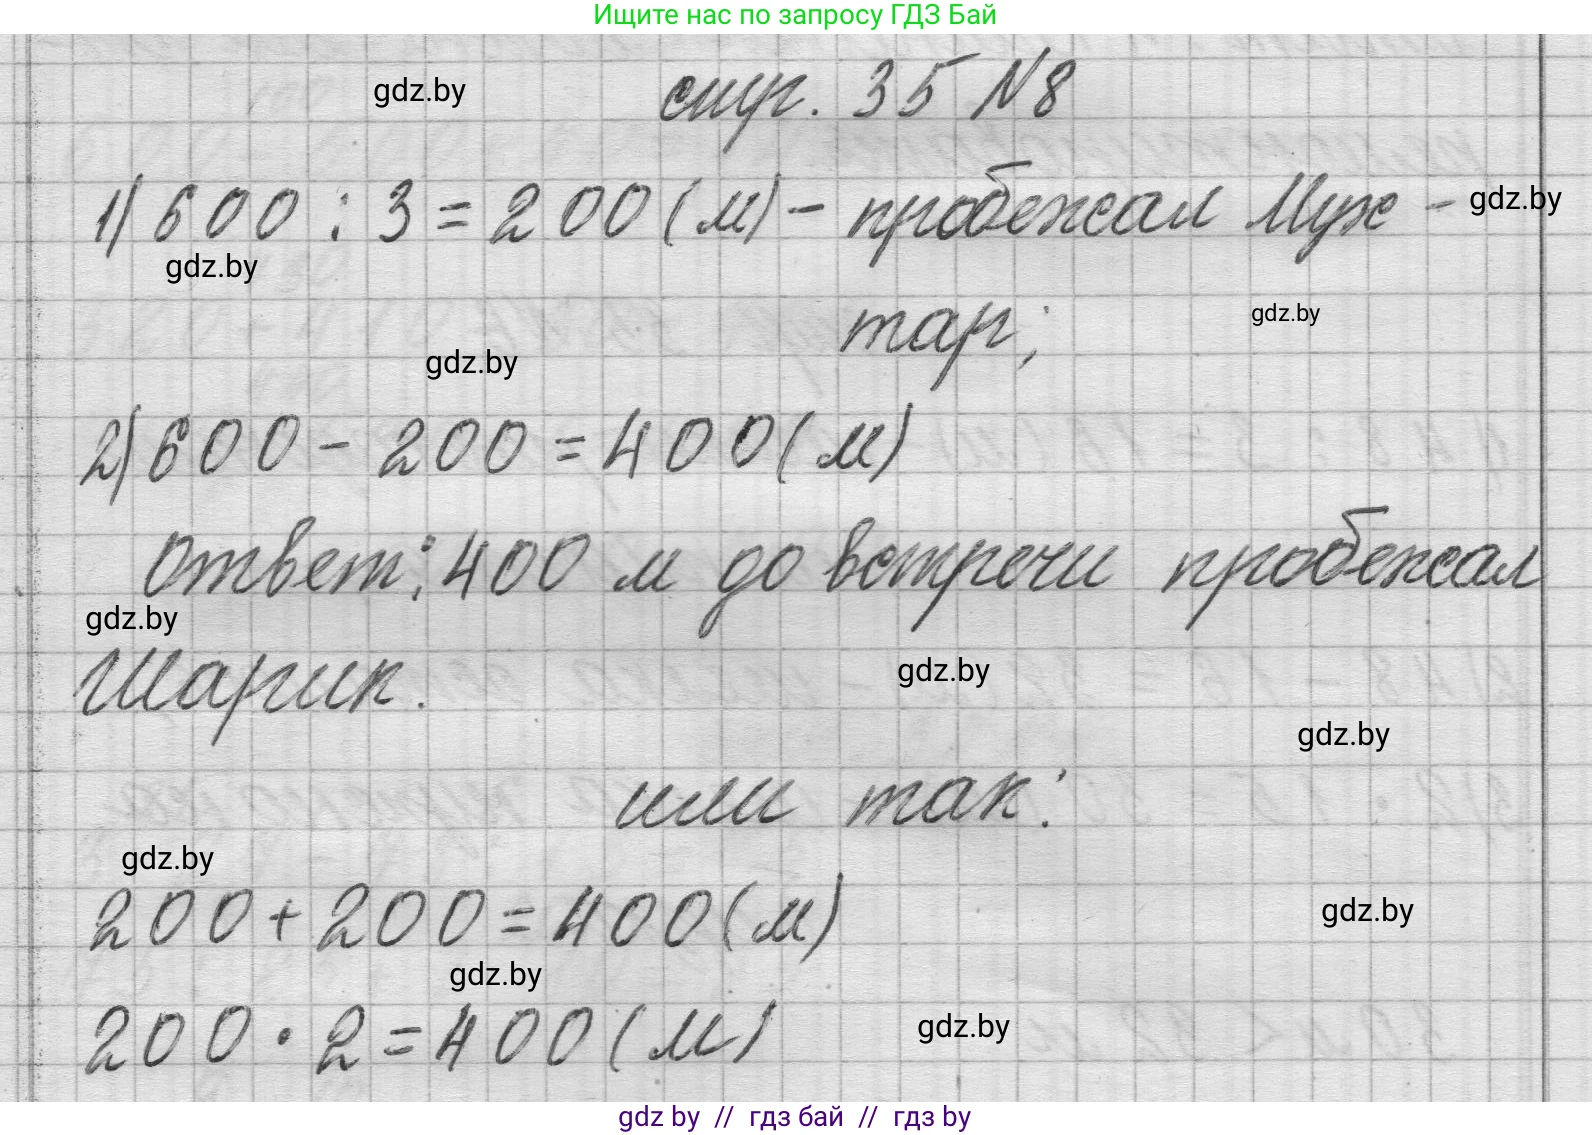 Ищите нас по запросу ГДЗ Бай
gdz.by
стр. 35 №8
1) 600 : 3 = 200 (м) - пробежал Мух -
gdz.by
gdz.by
тар;
gdz.by
gdz.by
2) 600 - 200 = 400 (м)
Ответ: 400 м до встречи пробежал
gdz.by
Шарик.
gdz.by
gdz.by
или так:
gdz.by
200 + 200 = 400 (м)
gdz.by
gdz.by
200 · 2 = 400 (м)
gdz.by
gdz by // гдз бай // гдз by